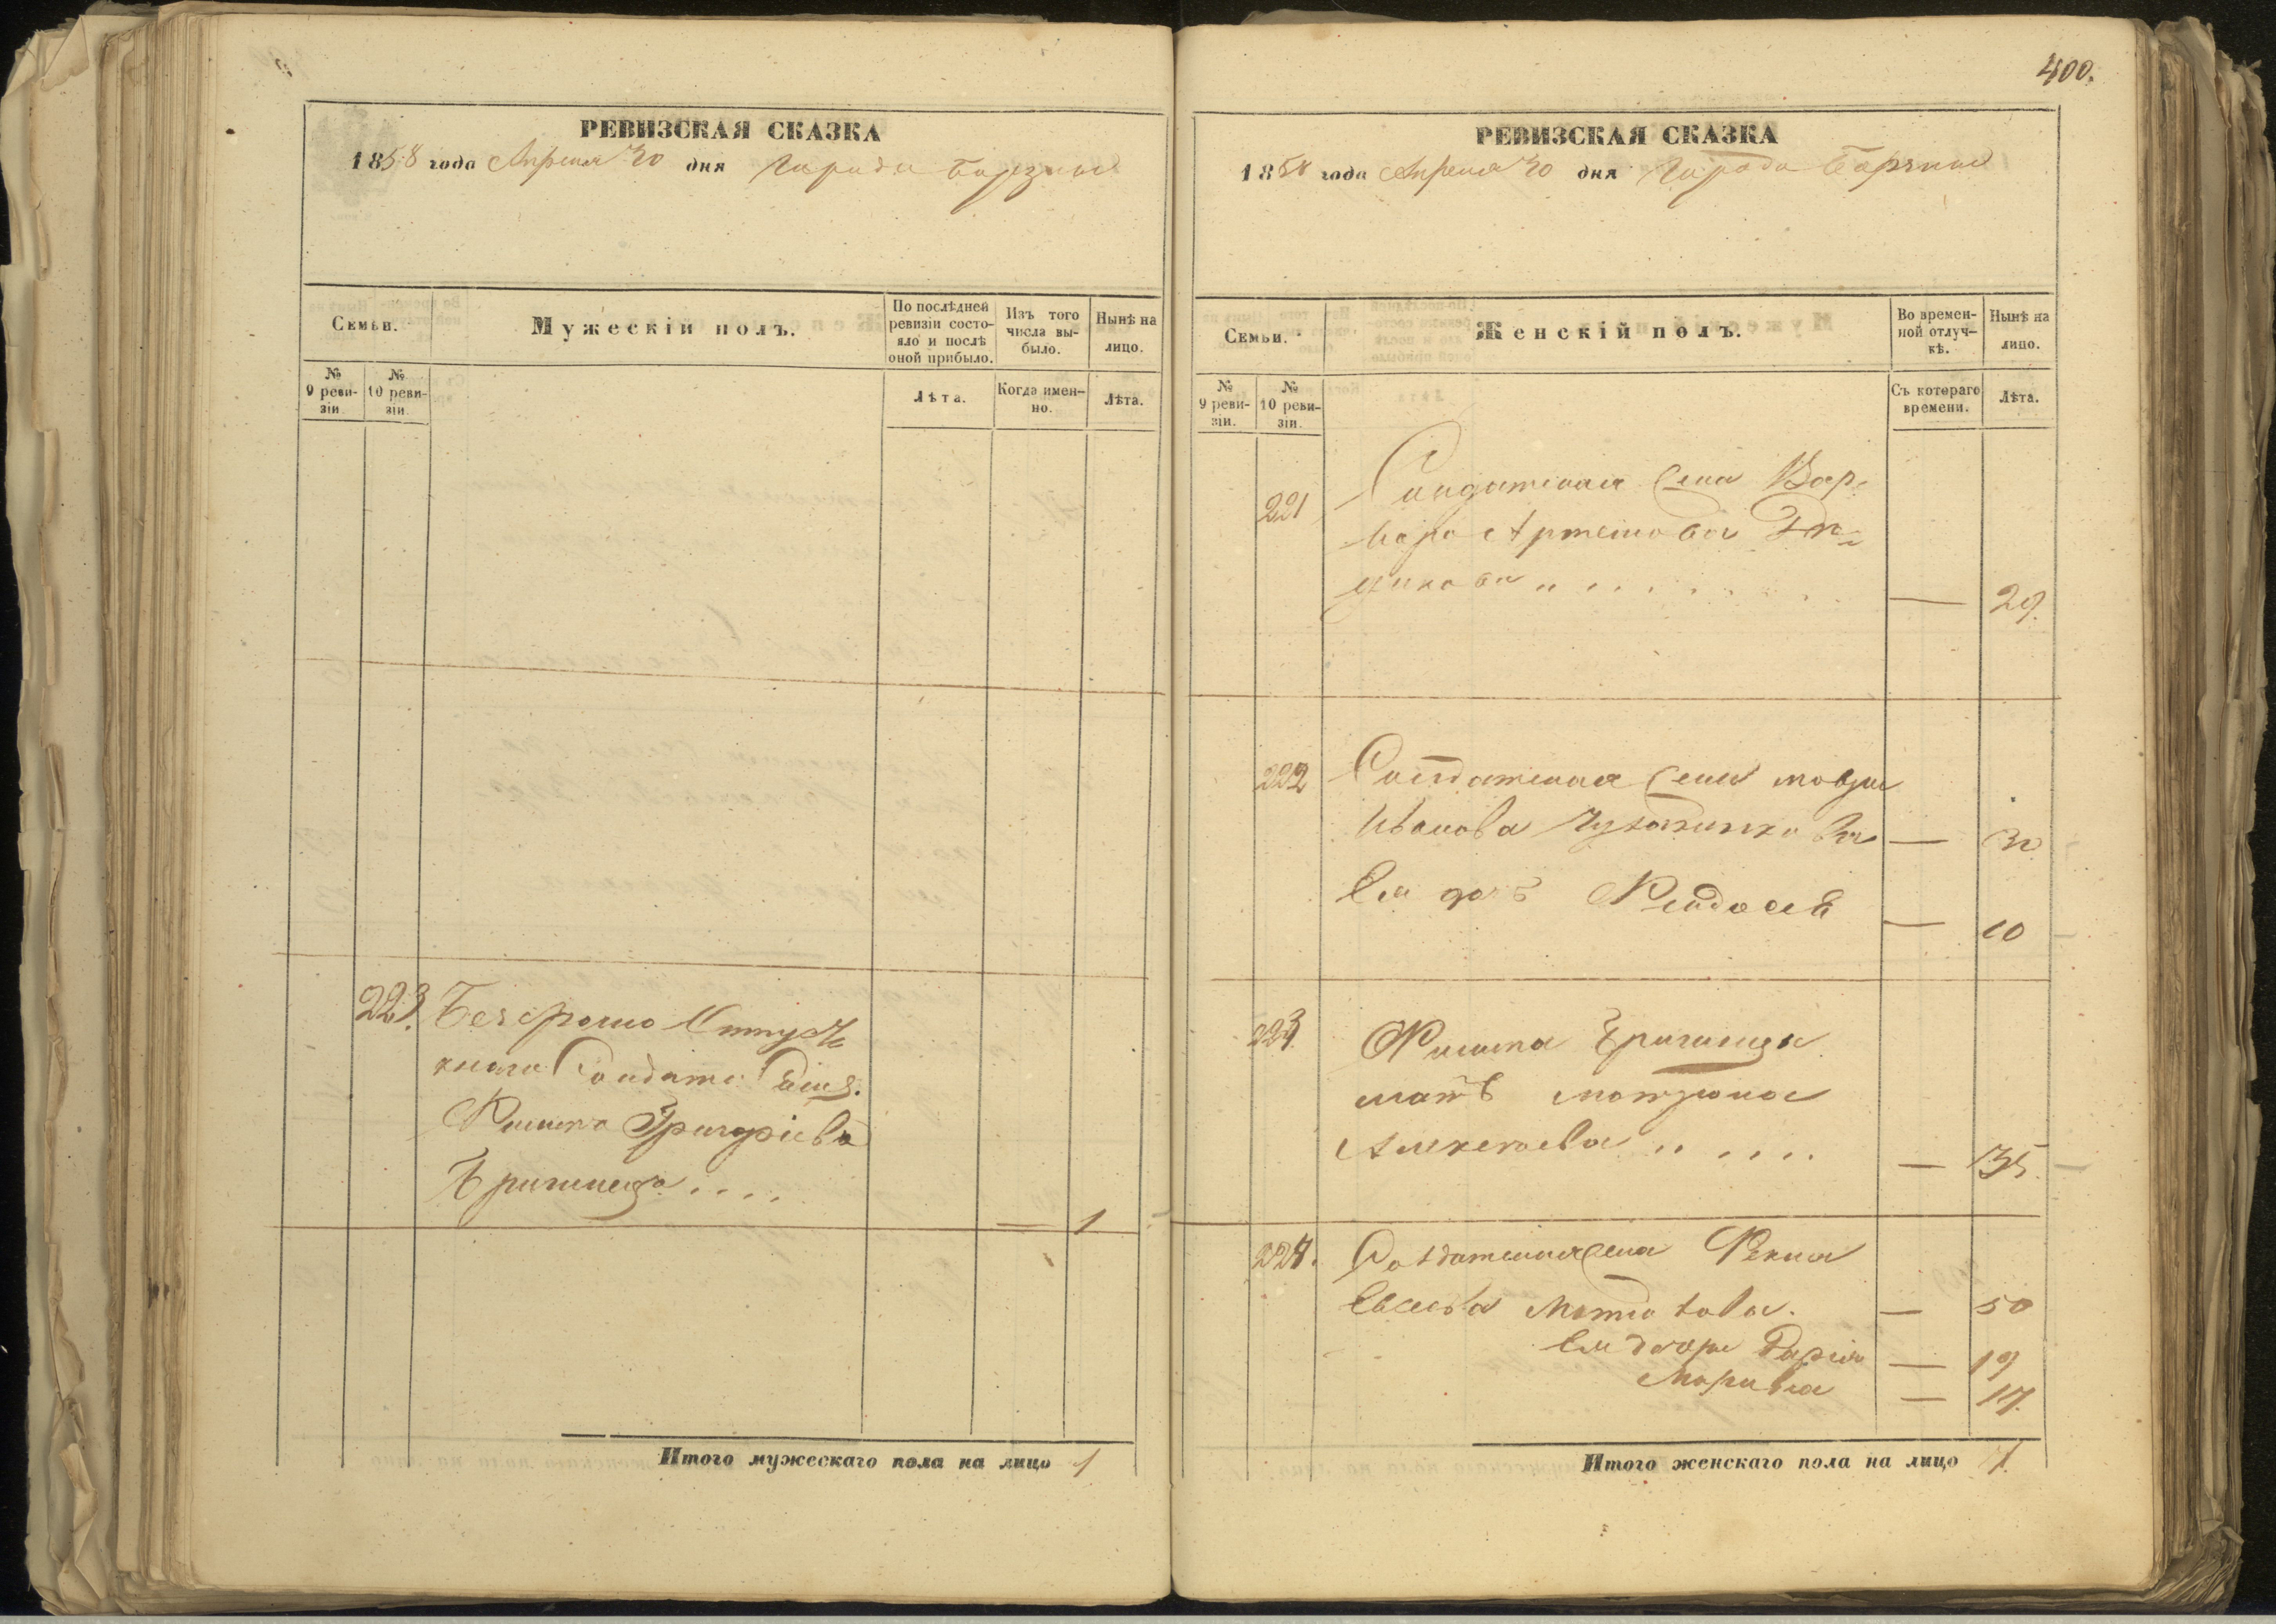 РЕВИЗСКАЯ СКАЗКА
1858 года Апреля 30 дня Города Борзны
Семьи.
Мужескій полъ.
По послѣдней ревизіи состояло и послѣ оной прибыло.
Изъ того числа выбыло.
Нынѣ на лицо.
№ 9 ревизіи.
№ 10 ревизіи.
Лѣта.
Когда именно.
Лѣта.
223.
Безсрочно Отпуск
наго Солдата Сынъ
Григоріева
1
Итого мужескаго пола на лицо 1
400.
РЕВИЗСКАЯ СКАЗКА
1858 года Апреля 30 дня Города Борзны
Семьи.
Женскій полъ.
Во временной отлучкѣ.
Нынѣ на лицо.
№ 9 ревизіи.
№ 10 ревизіи.
Съ котораго времени.
Лѣта.
221
Солдатская жена Вар
вара Артемова
— 29.
222
Солдатская жена Мавра
Иванова
— 30
Ея дочь Феодосія
— 10
223
мать Мотрона
Алексеева
— 35.
224.
Солдатская жена Фекла
Евсеева
— 50
Ея дочери Дарія — 19
Марина — 17.
Итого женскаго пола на лицо 7.